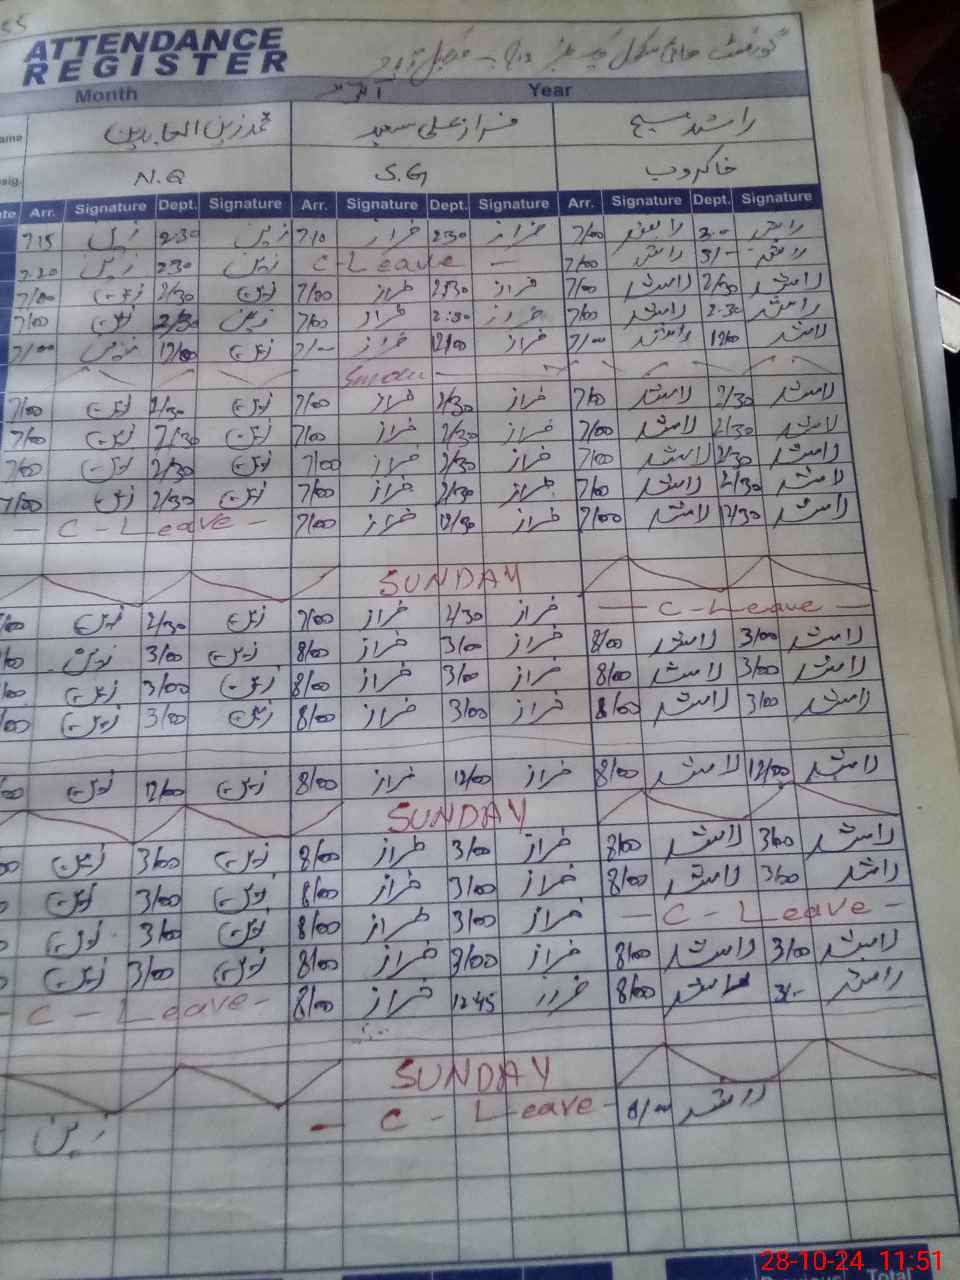 55
ATTENDANCE
REGISTER
گورنمنٹ ہائی سکول
Month Year
اکتوبر
ame محمد زین العابدین فراز علی سعید راشد مسیح
sig. N.Q S.G خاکروب
ate Arr. Signature Dept. Signature Arr. Signature Dept. Signature Arr. Signature Dept. Signature
7.15 زین 2:30 زین 7/0 فراز 2:30 فراز 7/00 راشد راشد
7.20 زین 2:30 زین C-Leave - 7/00 راشد 3/- راشد
7/00 زین 2/30 زین 7/00 فراز 2:30 فراز 7/00 راشد 2/30 راشد
7/00 زین 2/30 زین 7/00 فراز 2:30 فراز 7/00 راشد 2:30 راشد
7/00 زین 12/00 زین 7/00 فراز 12/00 فراز 7/00 راشد 12/00 راشد
7/00 زین 2/30 زین 7/00 فراز 2/30 فراز 7/00 راشد 2/30 راشد
7/00 زین 2/30 زین 7/00 فراز 2/30 فراز 7/00 راشد 2/30 راشد
7/00 زین 2/30 زین 7/00 فراز 2/30 فراز 7/00 راشد 2/30 راشد
7/00 زین 2/30 زین 7/00 فراز 2/30 فراز 7/00 راشد 2/30 راشد
- C - Leave - 7/00 فراز 12/30 فراز 7/00 راشد 12/30 راشد
SUNDAY
/00 زین 2/30 زین 7/00 فراز 2/30 فراز - C-Leave -
/00 زین 3/00 زین 8/00 فراز 3/00 فراز 8/00 راشد 3/00 راشد
/00 زین 3/00 زین 8/00 فراز 3/00 فراز 8/00 راشد 3/00 راشد
/00 زین 3/00 زین 8/00 فراز 3/00 فراز 8/00 راشد 3/00 راشد
00 زین 12/00 زین 8/00 فراز 12/00 فراز 8/00 راشد 12/00 راشد
SUNDAY
0 زین 3/00 زین 8/00 فراز 3/00 فراز 8/00 راشد 3/00 راشد
زین 3/00 زین 8/00 فراز 3/00 فراز 8/00 راشد 3/00 راشد
زین 3/00 زین 8/00 فراز 3/00 فراز - C - Leave -
زین 3/00 زین 8/00 فراز 3/00 فراز 8/00 راشد 3/00 راشد
- C - Leave - 8/00 فراز 12:45 فراز 8/00 راشد 3/- راشد
SUNDAY
زین - C - Leave - 8/00 راشد
Total
28-10-24 11:51